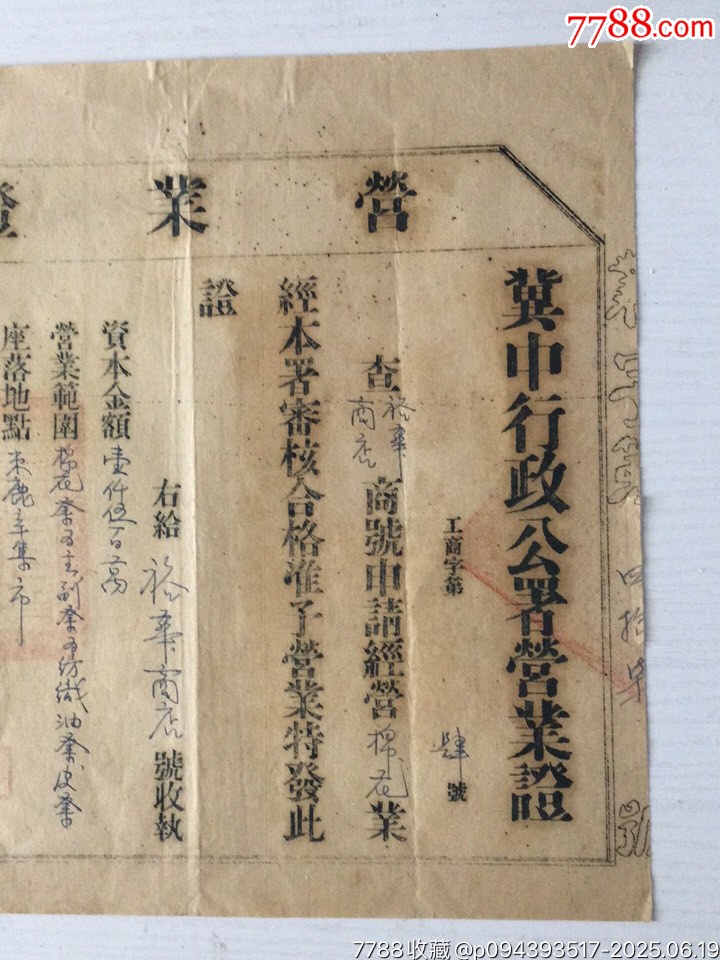 7788.com
營業證
冀中行政公署營業證
工商字第 肆 號
查裕華商店商號申請經營棉花業
經本署審核合格准予營業特發此
證
右給 裕華商店 號收執
資本金額壹仟伍百萬
營業範圍棉花業為主副業為紡織油業皮業
座落地點束鹿辛集市
7788收藏@p094393517-2025.06.19